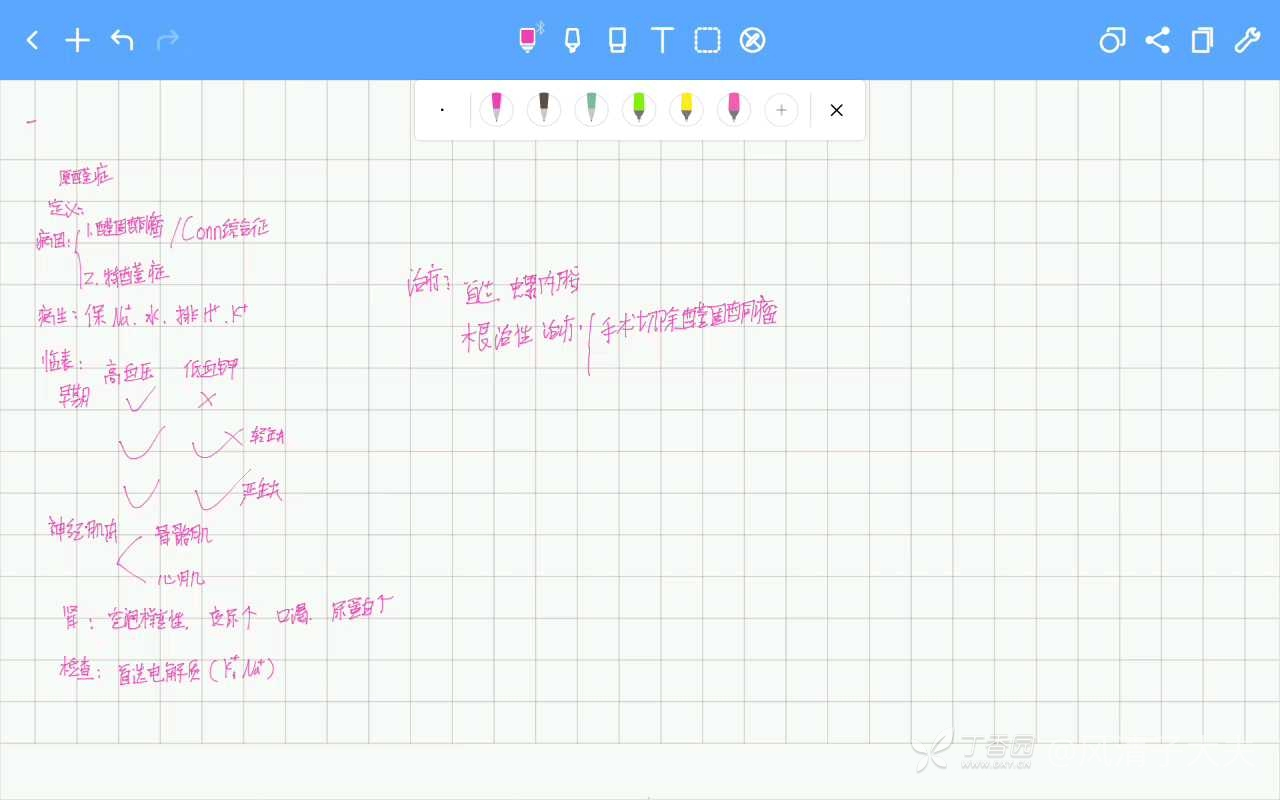 原醛症
定义:
病因: 1.醛固酮瘤/Conn综合征
2.特醛症
病生: 保Na⁺、水、排H⁺、K⁺
临表: 高血压 低血钾
早期 ✓ ×
✓ ✓ 轻症
✓ ✓ 严重
神经肌肉 骨骼肌
心肌
肾: 空泡样变性, 夜尿↑ 口渴、尿蛋白↑
检查: 首选电解质(K⁺、Na⁺)
治疗: 首选、螺内酯
根治性治疗: 手术切除醛固酮瘤
丁香园
WWW.DXY.CN